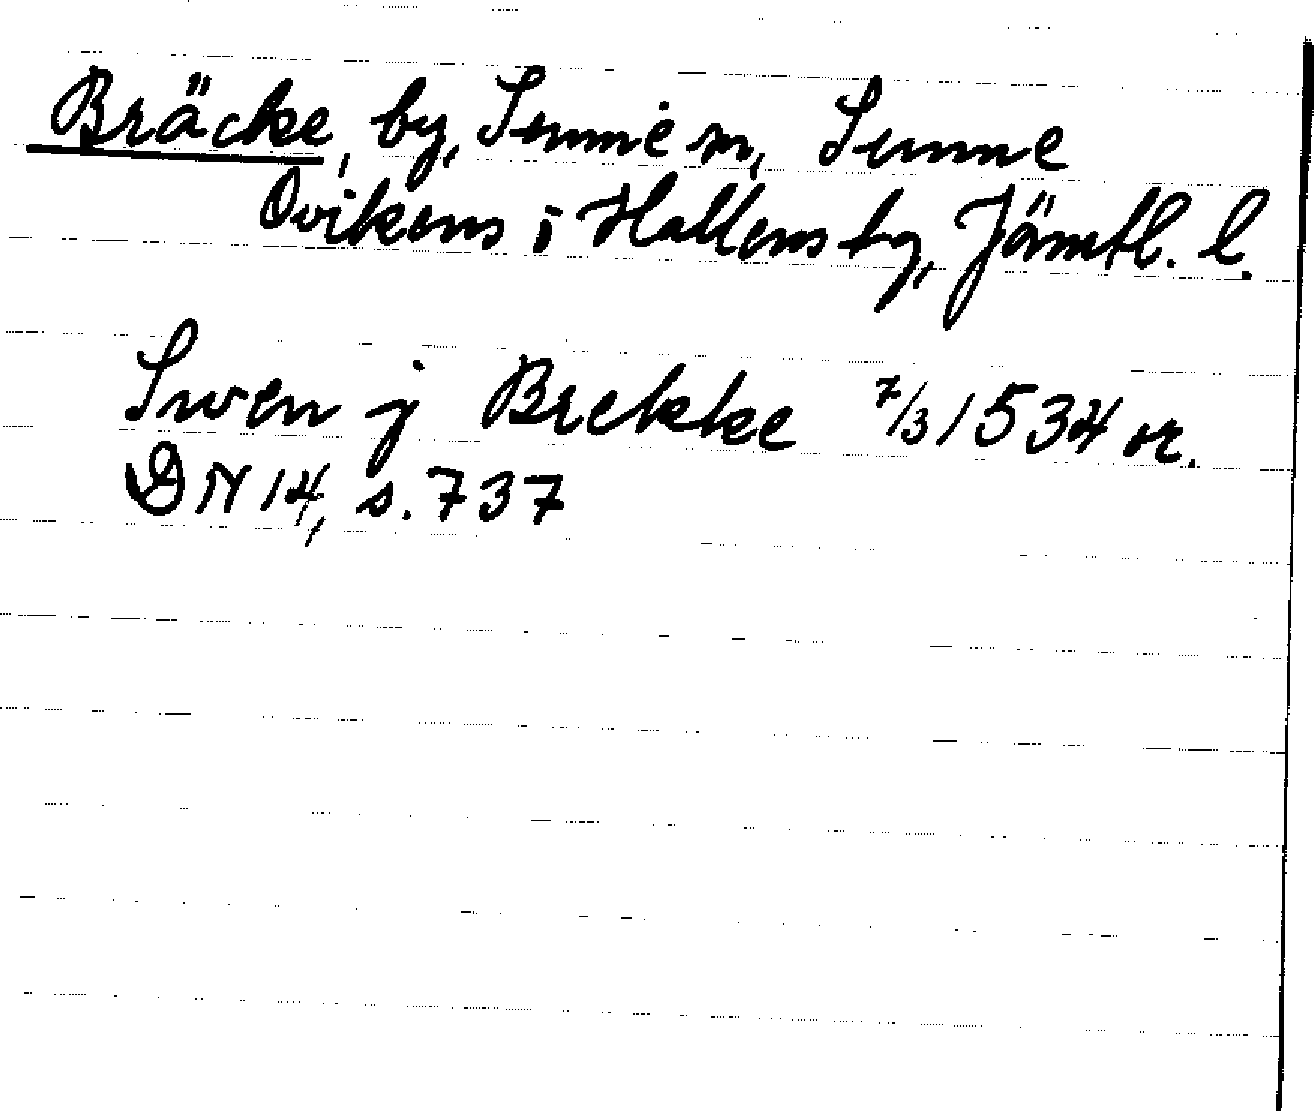 Bräcke, by, Sunne sn, Sunne
Ovikens o Hallens tg, Jämtl. l.
Swen j Brekke 7/3 1534 or.
DN 14, s. 737